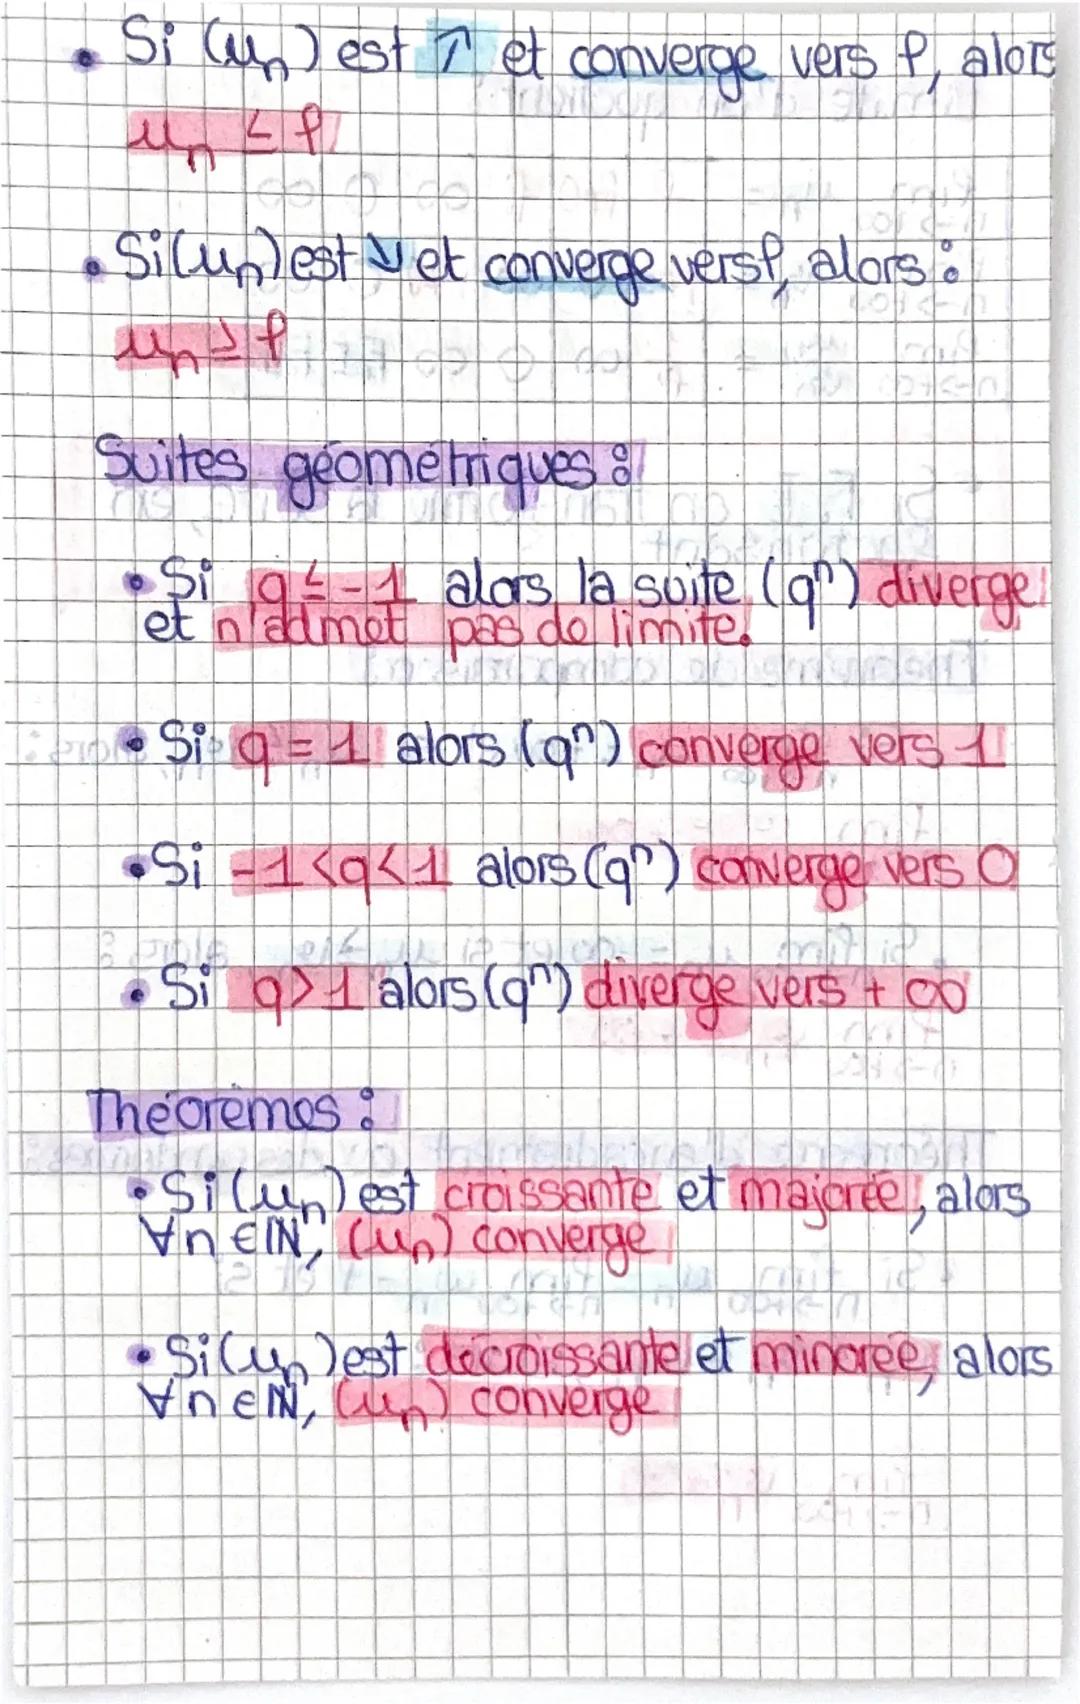 • Si (un) est ↗ et converge vers ℓ, alors
un ≤ ℓ
• Si (un) est ↘ et converge vers ℓ, alors :
un ≥ ℓ
Suites géométriques :
• Si q ≤ -1 alors la suite (qⁿ) diverge
et n'admet pas de limite.
• Si q = 1 alors (qⁿ) converge vers 1
• Si -1 < q < 1 alors (qⁿ) converge vers 0
• Si q > 1 alors (qⁿ) diverge vers + ∞
Théorèmes :
• Si (un) est croissante et majorée, alors
∀n ∈ ℕ, (un) converge
• Si (un) est décroissante et minorée, alors
∀n ∈ ℕ, (un) converge